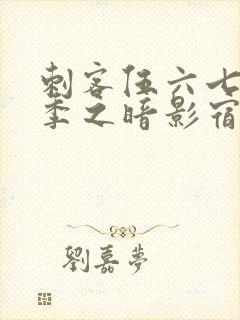 刺客伍六七
季之暗影宿
劉嘉夢